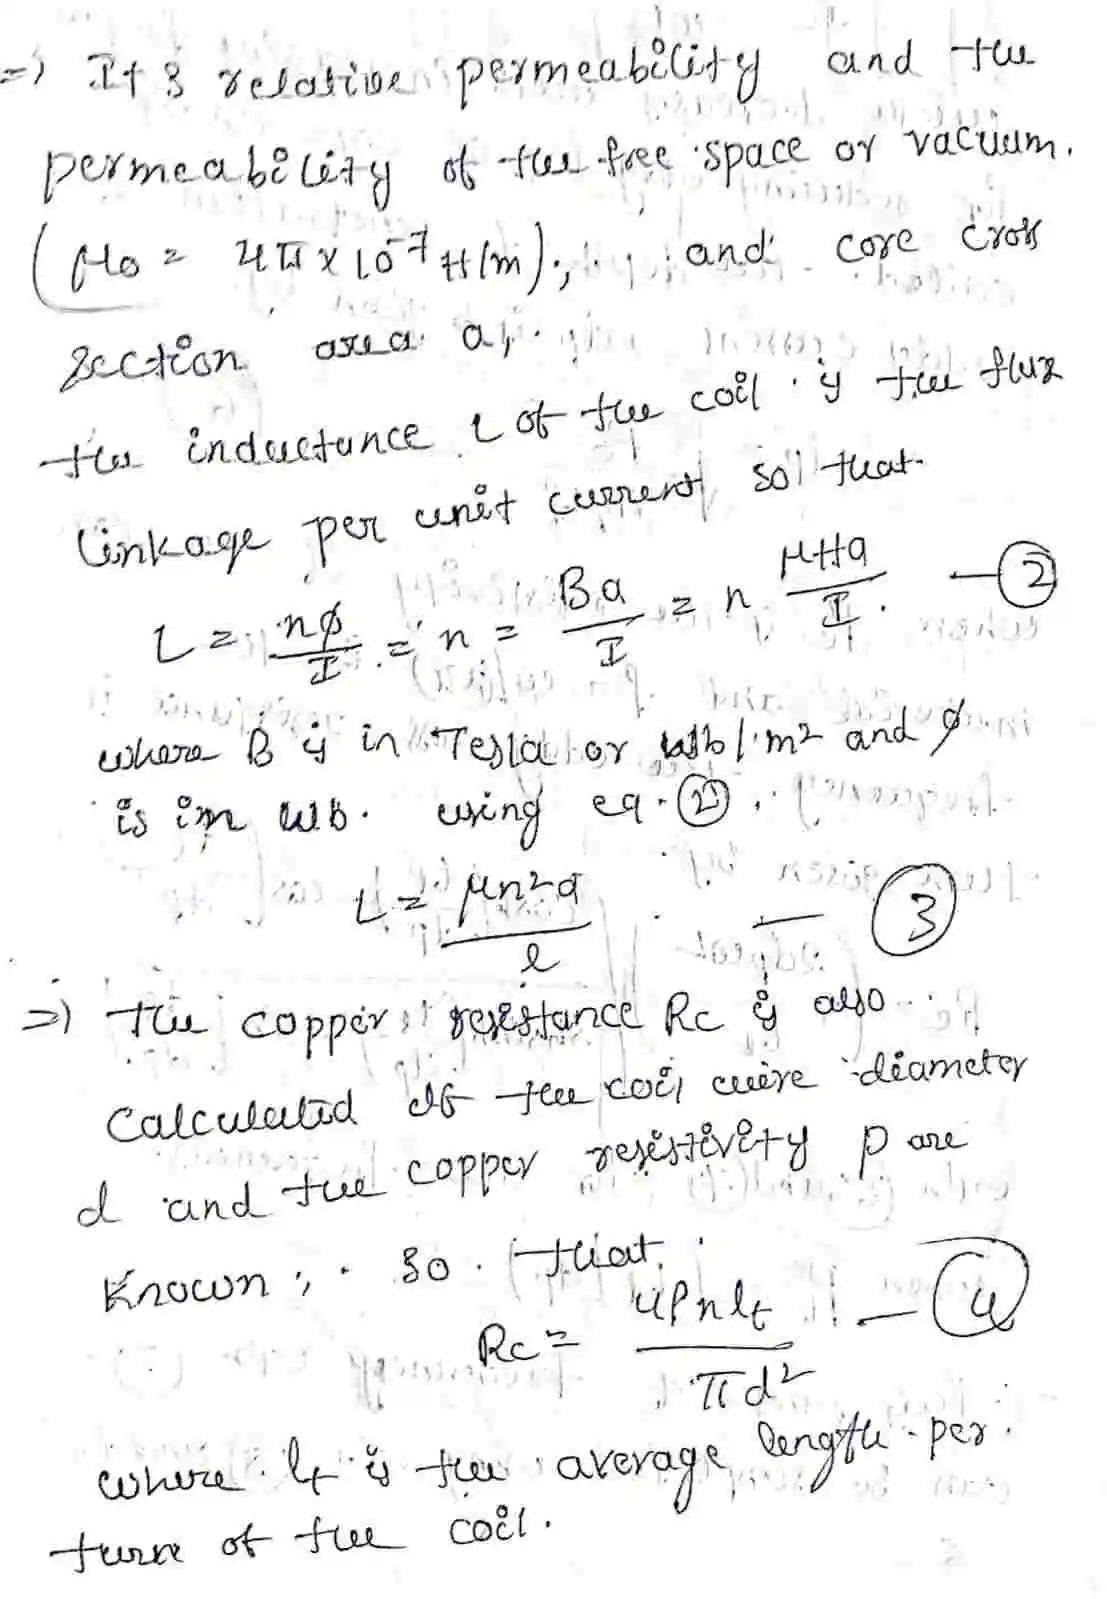 =) It s relative permeability and the
permeability of the free space or vacuum.
(μ0 = 4π × 10^-7 H/m);, and core cross
section area a,.
the inductance L of the coil is the flux
linkage per unit current so that
L = nφ/I = n = Ba/I = n μHa/I. — (2)
where B is in Tesla or wb/m2 and φ
is im wb. using eq. (2),
L = μn²a/l — (3)
=) the copper resistance Rc is also
Calculated If the coil wire diameter
d and the copper resistivity ρ are
Known; so that
Rc = 4ρnlt/πd² — (4)
where lt is the average length per
turn of the coil.